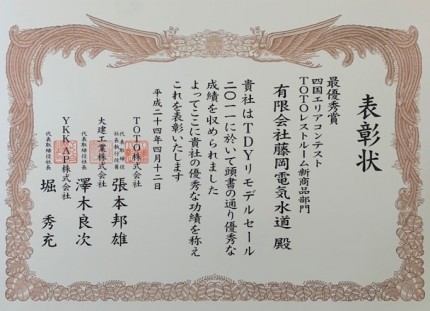 表彰状
最優秀賞
四国エリアコンテスト
TOTOレストルーム新商品部門
有限会社藤岡電気水道 殿
貴社はTDYリモデルセール
二〇一一に於いて頭書の通り優秀な
成績を収められました
よってここに貴社の優秀な功績を称え
これを表彰いたします
平成二十四年四月十二日
TOTO株式会社
代表取締役
社長執行役員
張本邦雄
大建工業株式会社
代表取締役社長
澤木良次
YKKAP株式会社
代表取締役社長
堀 秀充